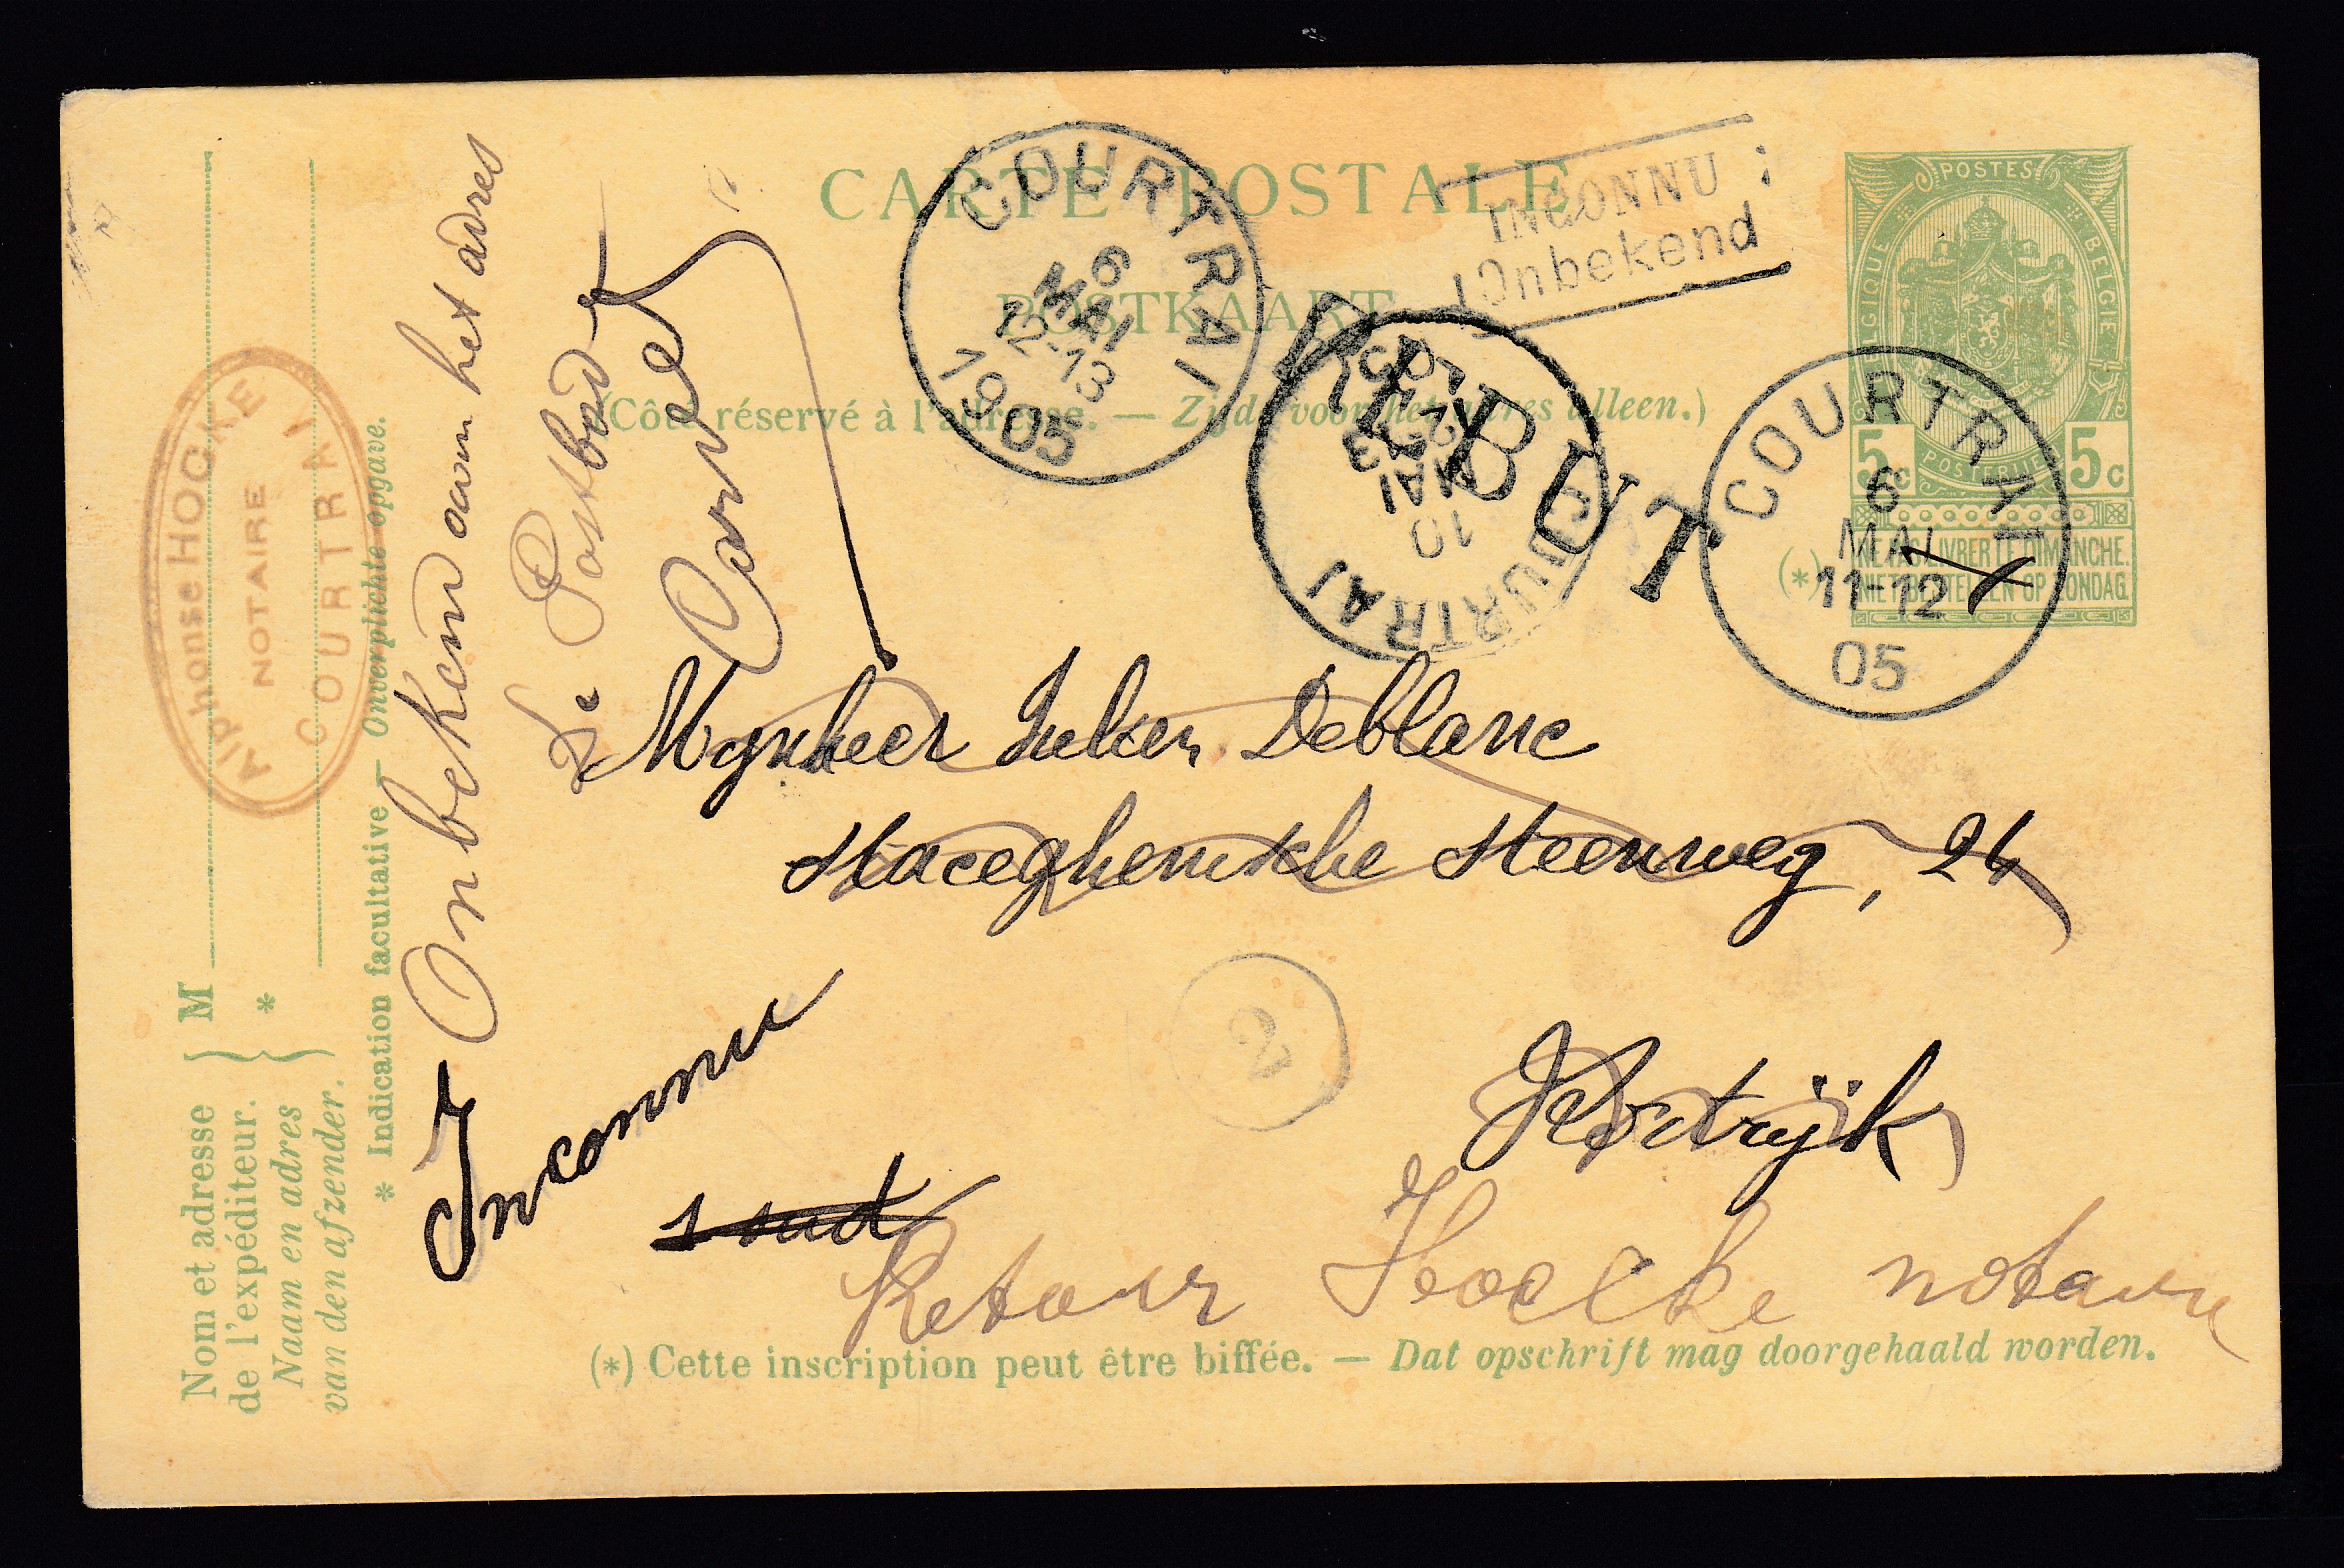 CARTE POSTALE
POSTKAART
(Côté réservé à l'adresse. — Zijde voor het adres alleen.)
COURTRAI
6
MAI
12-13
1905
INCONNU
Onbekend
REBUT
COURTRAI
10
MAI
COURTRAI
6
MAI
11-12
05
POSTES
BELGIQUE
BELGIE
POSTERIJEN
5 c
5 c
(*)
NE PAS LIVRER LE DIMANCHE.
NIET BESTELLEN OP ZONDAG
Alphonse HOCKE
NOTAIRE
COURTRAI
Nom et adresse
de l'expéditeur.
Naam en adres
van den afzender.
M
*
* Indication facultative — Onverplichte opgave.
Onbekend aan het adres
De Postbode
Mynheer Deblanc
Staceghemsche Steenweg, 24
Kortrijk
Inconnu
2
Retour Hocke notaire
(*) Cette inscription peut être biffée. — Dat opschrift mag doorgehaald worden.